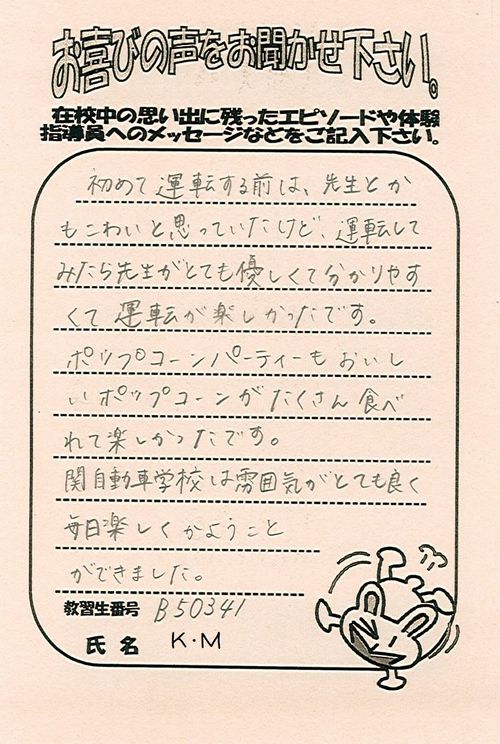 お喜びの声をお聞かせ下さい。
在校中の思い出に残ったエピソードや体験
指導員へのメッセージなどをご記入下さい。
初めて運転する前は、先生とか
もこわいと思っていたけど、運転して
みたら先生がとても優しくて分かりやす
くて運転が楽しかったです。
ポップコーンパーティーもおいし
いポップコーンがたくさん食べ
れて楽しかったです。
関自動車学校は雰囲気がとても良く
毎日楽しくかようこと
ができました。
教習生番号 B50341
氏名 K.M